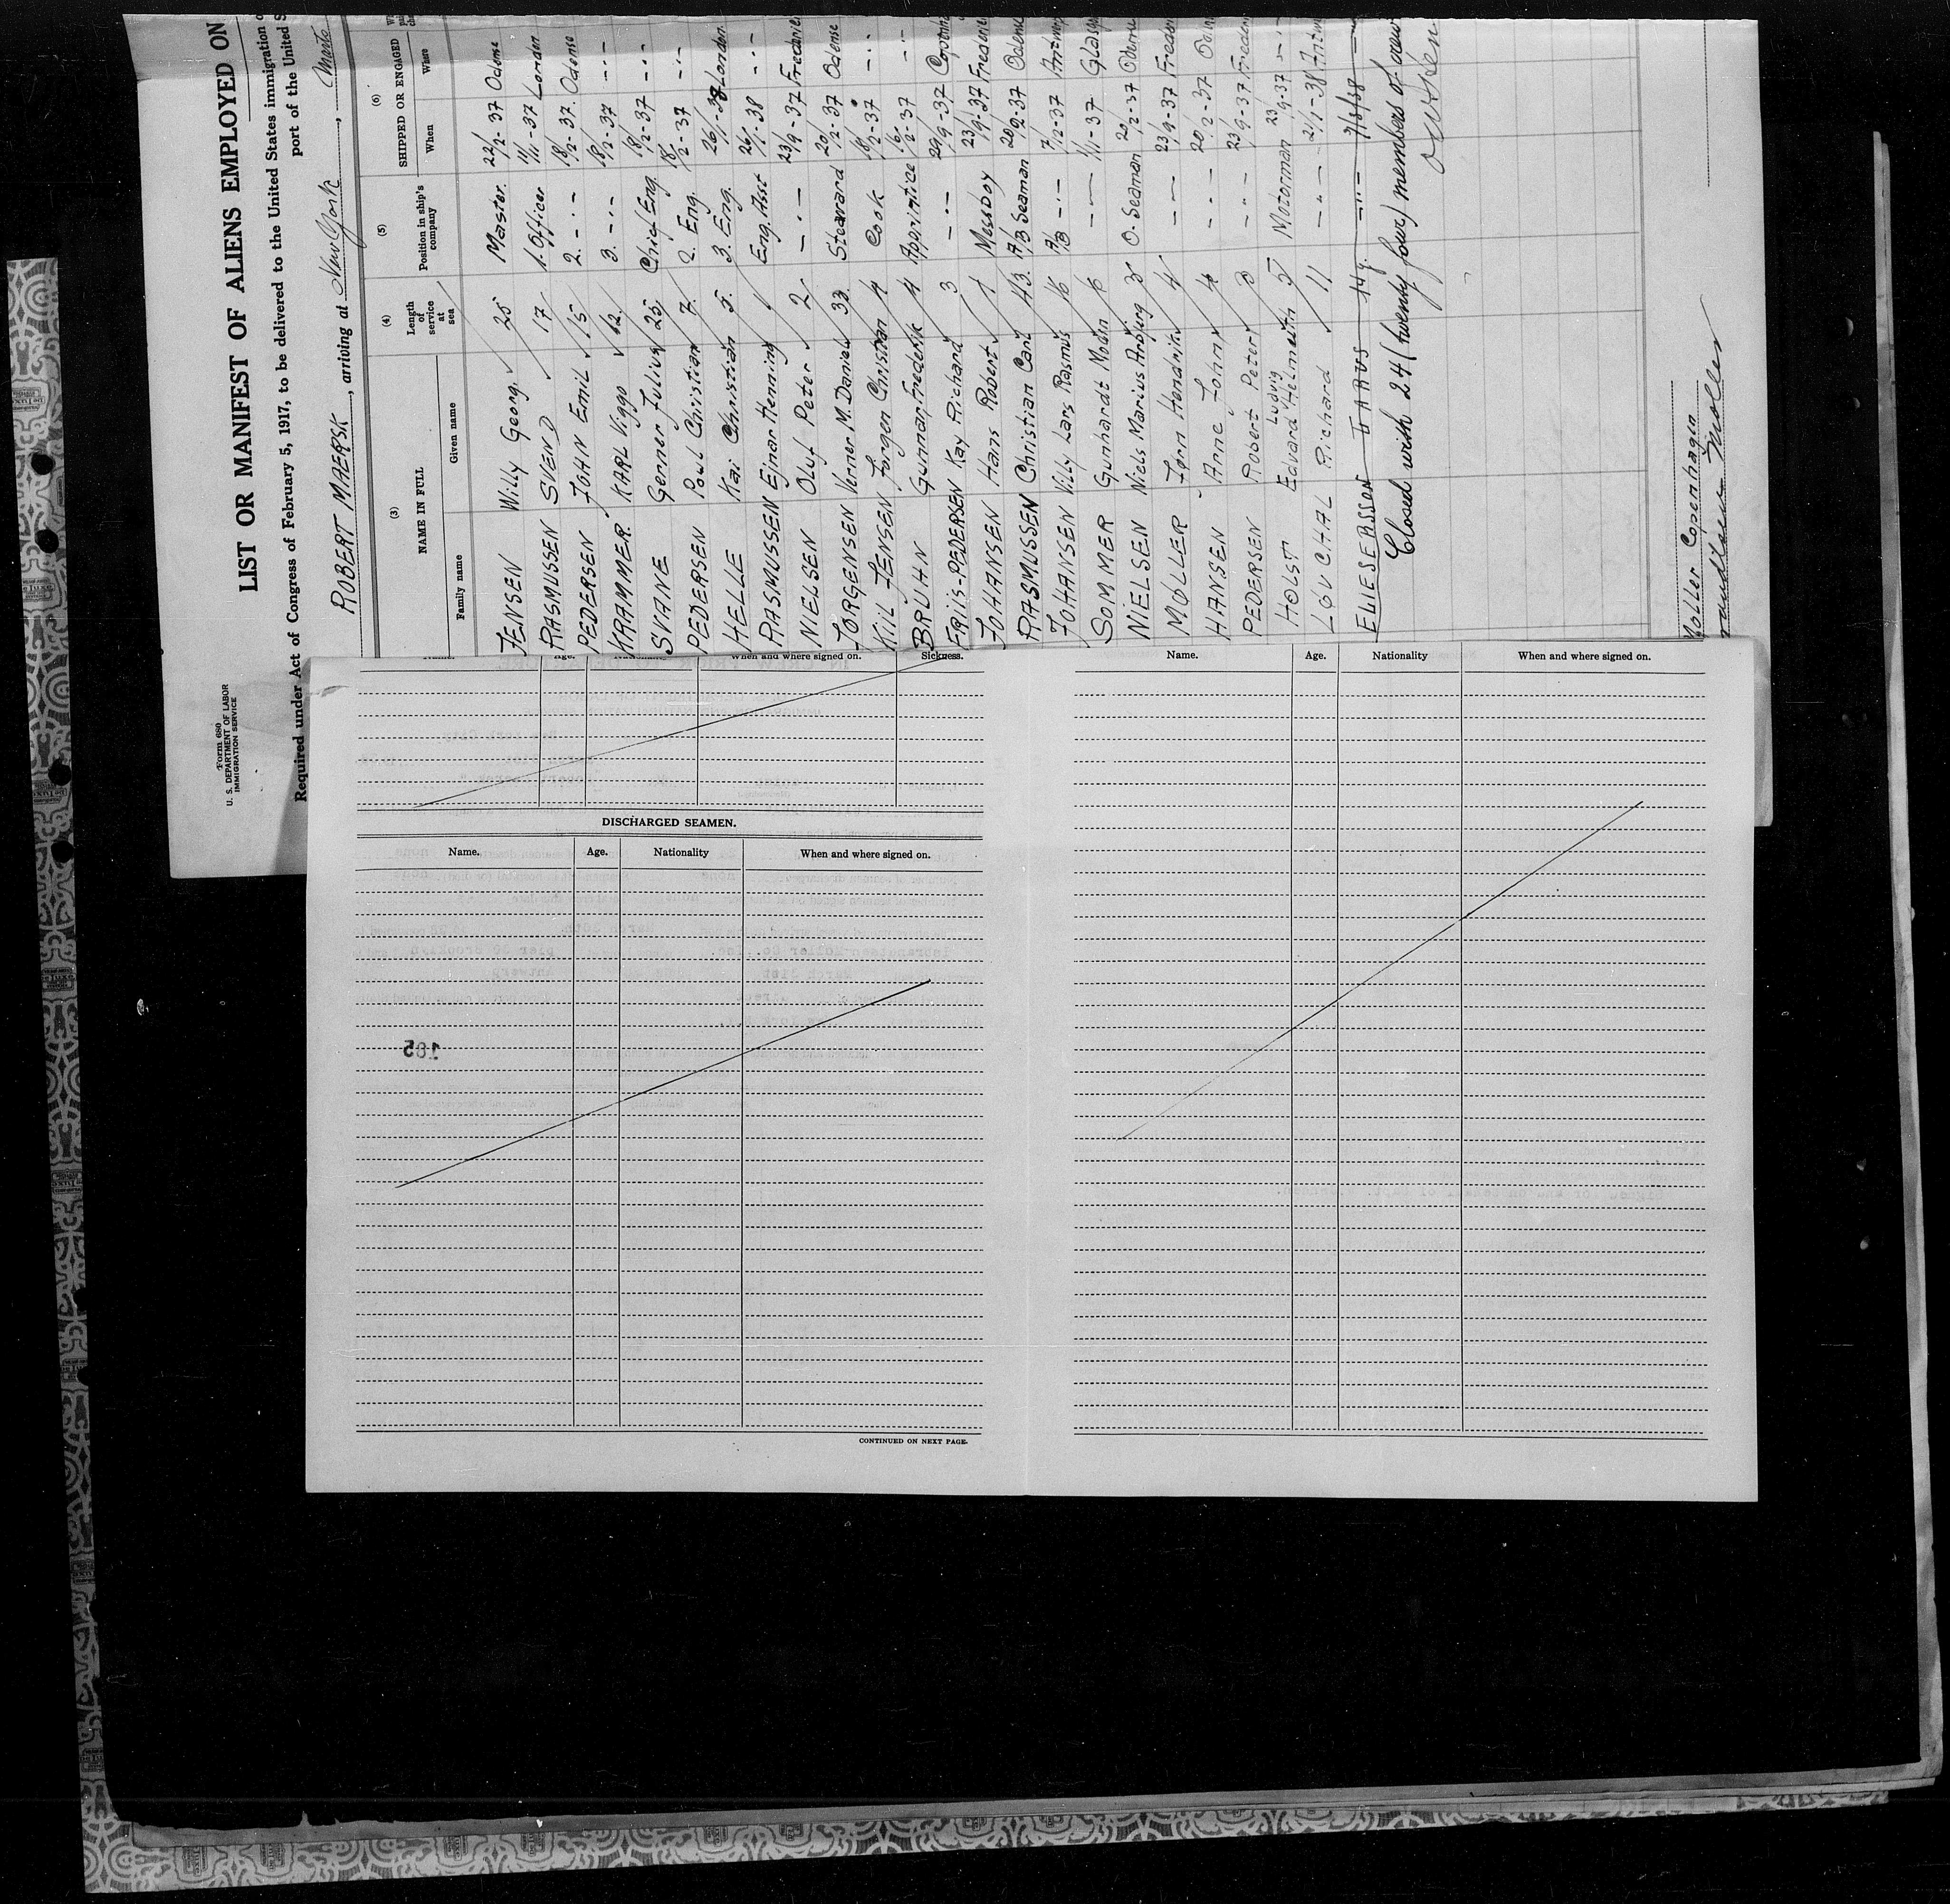 Form 680
U. S. DEPARTMENT OF LABOR
IMMIGRATION SERVICE
LIST OR MANIFEST OF ALIENS EMPLOYED ON
Required under Act of Congress of February 5, 1917, to be delivered to the United States immigration
port of the United S
ROBERT MAERSK, arriving at New York, March
(3) (4) (5) (6)
NAME IN FULL Length of service at sea Position in ship's company SHIPPED OR ENGAGED
Family name Given name When Where
JENSEN Willy Georg. 25 Master. 22/2-37 Odense
RASMUSSEN SVEND 17 1. Officer 11/11-37 London
PEDERSEN JOHN EMIL 15 2. -"- 18/2-37. Odense
KRAMMER. KARL Viggo 12. 3. -"- 18/2-37 -"-
SVANE Genner Julius 25 Chief Eng. 18/2-37 -"-
PEDERSEN Poul Christian 7. 2. Eng. 18/2-37 -"-
HELLE Kai Christian 5. 3. Eng. 26/1-38 London
RASMUSSEN Ejnar Henning 1 Eng. Asst 26/1-38 -"-
NIELSEN Oluf Peter 2 -"- 23/9-37 Frederi
JORGENSEN Verner M. Daniel 33. Steward 20/2-37 Odense
Kiil JENSEN Jorgen Christian 4 Cook 18/2-37 -"-
BRUHN Gunnar, Frederik 4 Apprintice 16/2-37 -"-
Friis-PEDERSEN Kay Richard 3 -"- 29/9-37 Copenha
JOHANSEN Hans Robert 1 Mess Boy 23/9-37 Frederi
RASMUSSEN Christian Carl 43. A/B Seaman 20/2-37 Odense
JOHANSEN Villy Lars Rasmus 16 A/B -"- 7/12-37 Antwerp
SOMMER Gunhardt 6 -"- 1/11-37 Glasgow
NIELSEN Niels Marius 3 O. Seaman 20/2-37 Odense
MØLLER Jørn Hendrik 4 -"- 23/9-37 Freder
HANSEN Arne Johny 4 -"- 20/2-37 Oden
PEDERSEN Robert Peter 3 -"- 23/9-37 Freder
HOLST Edvard Ludvig Helmuth 5 Motorman 23/9-37 -"-
LØVCHAL Richard 11 -"- 21/1-38 Antw
ELIESERSSON
Closed with 24 (twenty four) members of crew
Moller Copenhagen
Moller
Name. Age. Nationality When and where signed on. Sickness.
DISCHARGED SEAMEN.
Name. Age. Nationality When and where signed on.
185
CONTINUED ON NEXT PAGE.
Name. Age. Nationality When and where signed on.